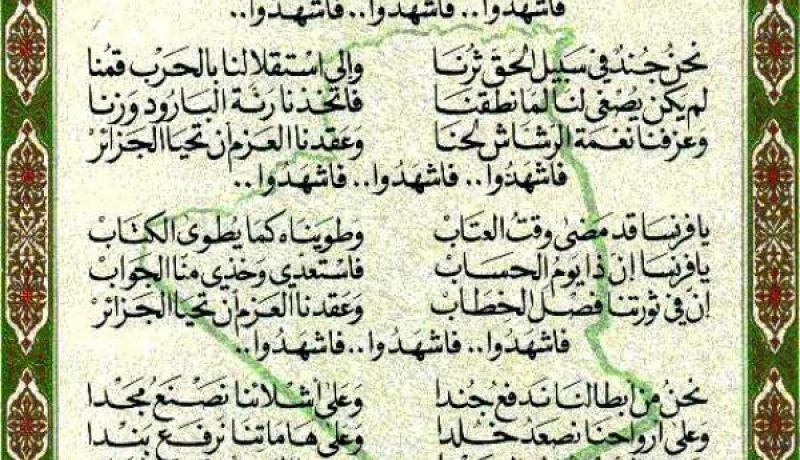 فاشهدوا.. فاشهدوا.. فاشهدوا..
نحنُ جُندٌ في سَبيل الحَقّ ثُرنَا وإلى اسْتقلالنا بالحَرْب قمُنا
لم يكن يُصْغى لنا لمَا نطقنَا فاتخذنا رنَّة البَارُود وَزنا
وعزفنا نغمَة الرشاش لحنَا وَعَقدنا العزم أن تحيَا الجَزائرْ
فاشهَدُوا.. فاشهَدُوا.. فاشهَدُوا..
يا فرنسَا قد مَضىٰ وقتُ العتَابْ وَطويناه كمَا يُطوىٰ الكتَابْ
يا فرنسَا إن ذا يومُ الحسَابْ فاسْتعدّي وَخذي منّا الجوَابْ
إنّ في ثورتنَا فصْل الخطابْ وَعَقدنا العزم أن تحيَا الجَزائرْ
فاشهَدُوا.. فاشهَدُوا.. فاشهَدُوا..
نحنُ من أبطالنَا ندفعُ جُندا وَعَلى أشلائنا نصْنعُ مجْدا
وَعلى أروَاحنا نصعَدُ خُلدا وَعلى هَامَاتنا نرفعُ بَندا